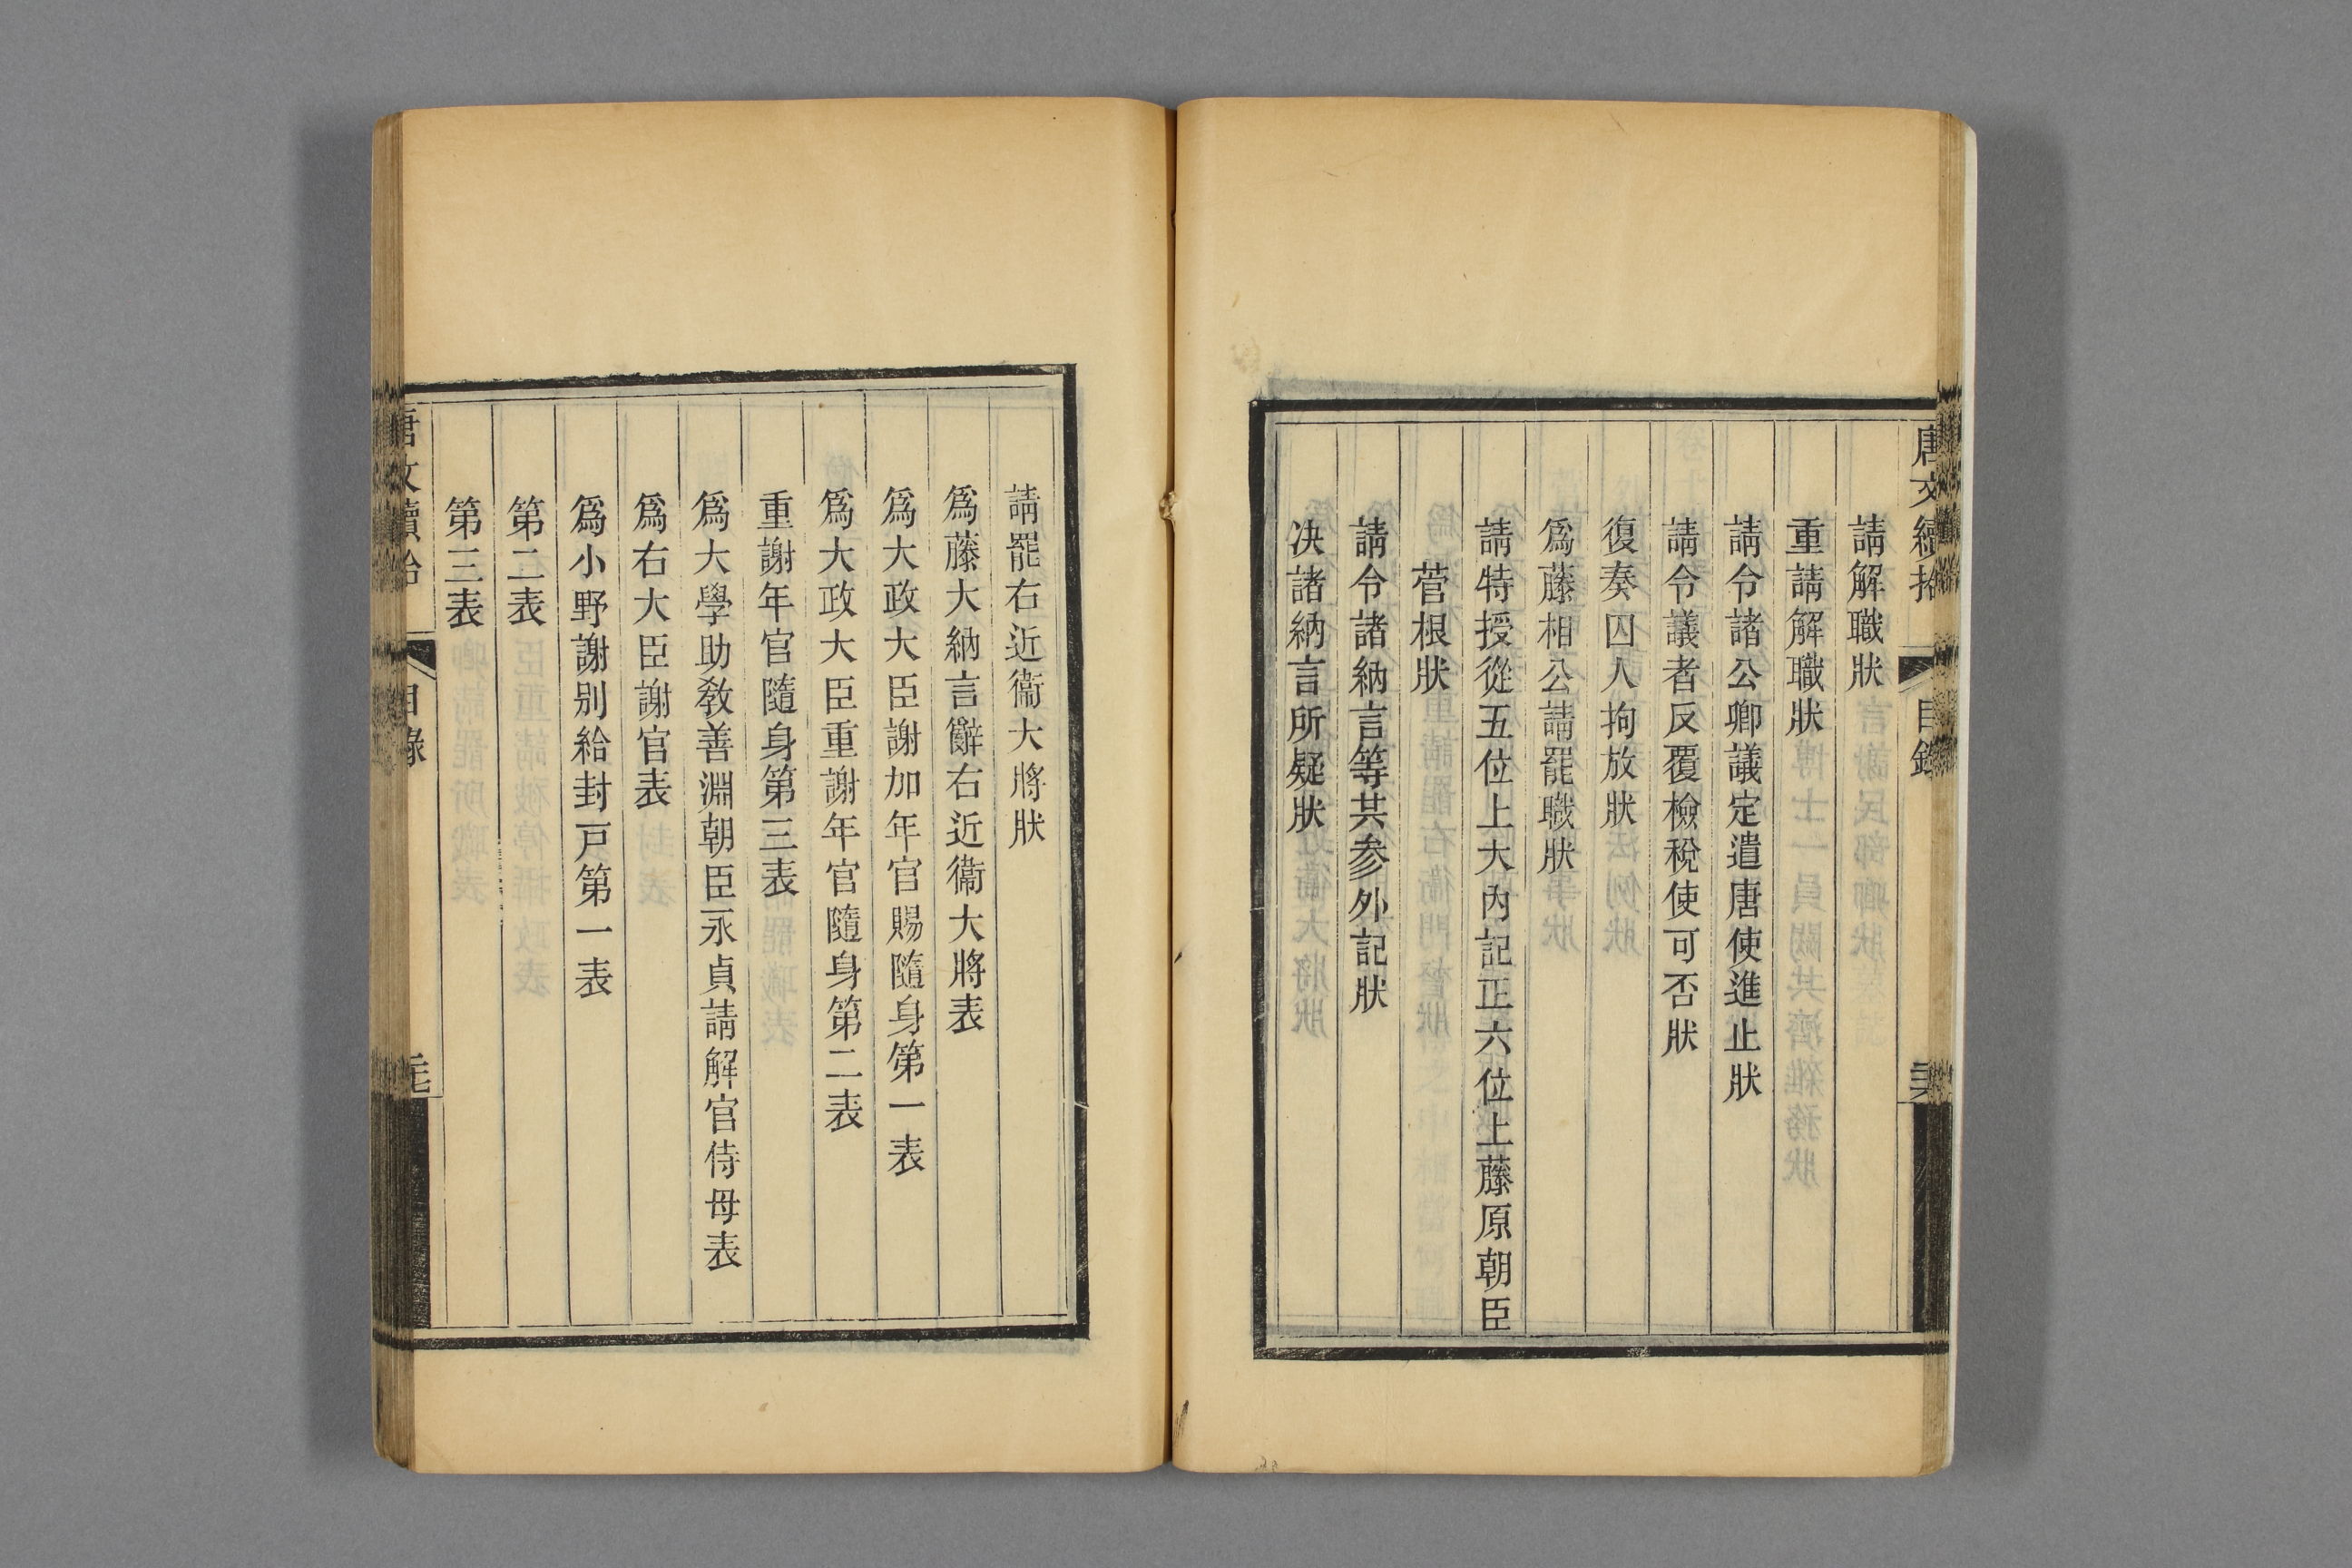 唐文續拾
目錄
請解職狀
重請解職狀
請令諸公卿議定遣唐使進止狀
請令議者反覆檢稅使可否狀
復奏囚人拘放狀
爲藤相公請罷職狀
請特授從五位上大內記正六位上藤原朝臣
菅根狀
請令諸納言等共參外記狀
决諸納言所疑狀
請罷右近衞大將狀
爲藤大納言辭右近衞大將表
爲大政大臣謝加年官賜隨身第一表
爲大政大臣重謝年官隨身第二表
重謝年官隨身第三表
爲大學助教善淵朝臣永貞請解官侍母表
爲右大臣謝官表
爲小野謝别給封戸第一表
第二表
第三表
唐文續拾
目錄